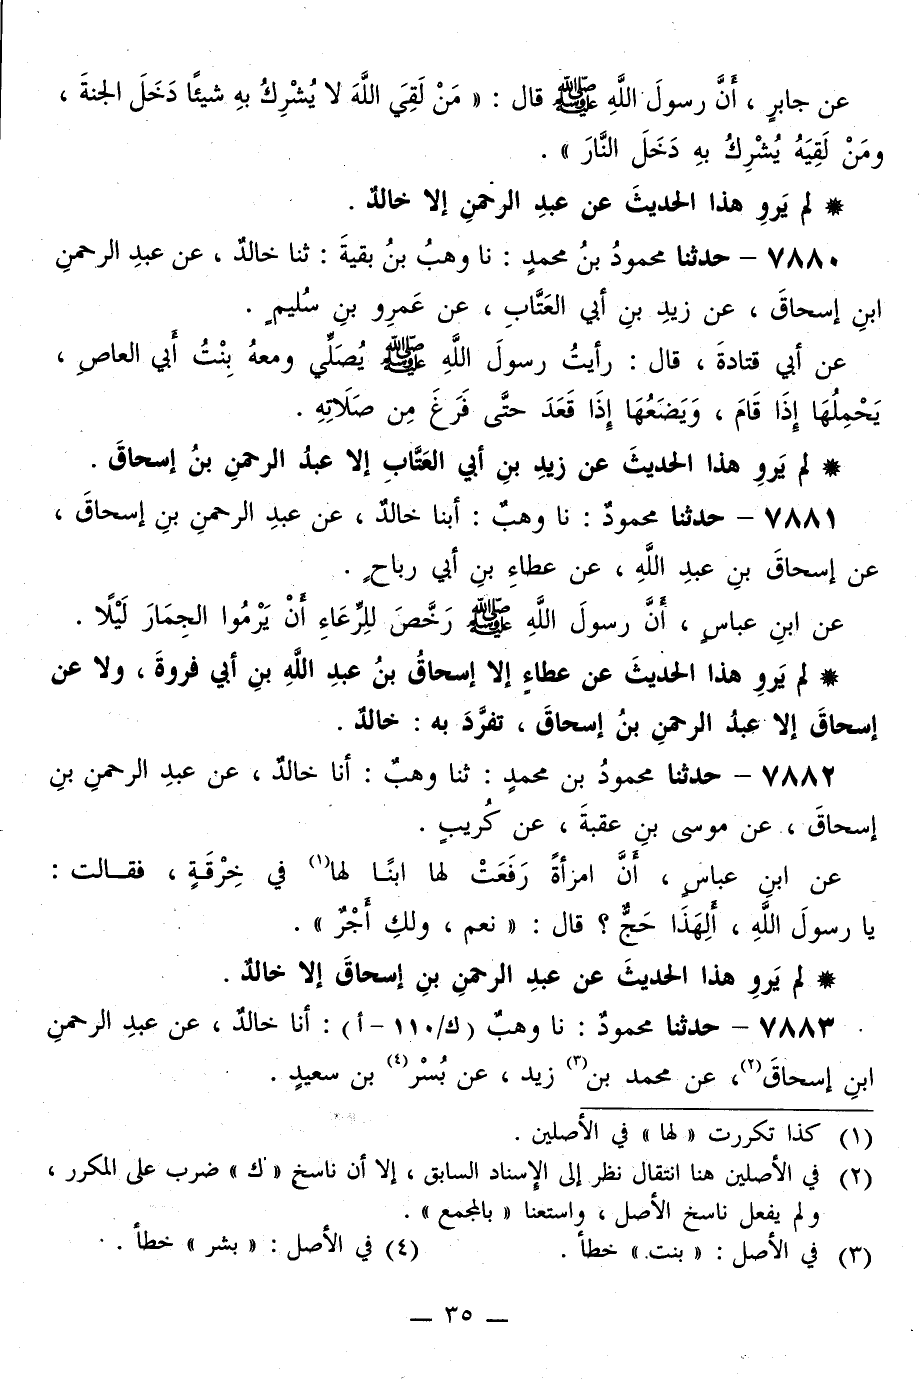 عن جابرٍ ، أَنَّ رسولَ اللَّهِ ﷺ قال : « مَنْ لَقِيَ اللَّهَ لا يُشْرِكُ بهِ شيئًا دَخَلَ الجنةَ ،
ومَنْ لَقِيَهُ يُشْرِكُ بهِ دَخَلَ النَّارَ » .
* لم يَروِ هذا الحديثَ عن عبدِ الرحمنِ إلا خالدٌ .
٧٨٨٠ – حدثنا محمودُ بنُ محمدٍ : نا وهبُ بنُ بقيةَ : ثنا خالدٌ ، عن عبدِ الرحمنِ
ابنِ إسحاقَ ، عن زيدِ بنِ أبي العَتَّابِ ، عن عَمرِو بنِ سُليمٍ .
عن أبي قتادةَ ، قال : رأيتُ رسولَ اللَّهِ ﷺ يُصَلِّي ومعهُ بِنْتُ أَبي العاصِ ،
يَحْمِلُهَا إِذَا قَامَ ، وَيَضَعُهَا إِذَا قَعَدَ حتَّى فَرَغَ مِن صَلَاتِهِ .
* لم يَروِ هذا الحديثَ عن زيدِ بنِ أبي العَتَّابِ إلا عبدُ الرحمنِ بنُ إسحاقَ .
٧٨٨١ – حدثنا محمودٌ : نا وهبٌ : أبنا خالدٌ ، عن عبدِ الرحمنِ بنِ إسحاقَ ،
عن إسحاقَ بنِ عبدِ اللَّهِ ، عن عطاءِ بنِ أبي رباحٍ .
عن ابنِ عباسٍ ، أَنَّ رسولَ اللَّهِ ﷺ رَخَّصَ لِلرِّعَاءِ أَنْ يَرْمُوا الجِمَارَ لَيْلًا .
* لم يَروِ هذا الحديثَ عن عطاءٍ إلا إسحاقُ بنُ عبدِ اللَّهِ بنِ أبي فروةَ ، ولا عن
إسحاقَ إلا عبدُ الرحمنِ بنُ إسحاقَ ، تفرَّدَ به : خالدٌ .
٧٨٨٢ – حدثنا محمودُ بن محمدٍ : ثنا وهبٌ : أنا خالدٌ ، عن عبدِ الرحمنِ بنِ
إسحاقَ ، عن موسى بنِ عقبةَ ، عن كُريبٍ .
عن ابنِ عباسٍ ، أَنَّ امرأةً رَفَعَتْ لها ابنًا لها(١) في خِرْقَةٍ ، فقالت :
يا رسولَ اللَّهِ ، أَلِهَذَا حَجٌّ ؟ قال : « نعم ، ولكِ أَجْرٌ » .
* لم يَروِ هذا الحديثَ عن عبدِ الرحمنِ بنِ إسحاقَ إلا خالدٌ .
٧٨٨٣ – حدثنا محمودٌ : نا وهبٌ (ك/١١٠ – أ) : أنا خالدٌ ، عن عبدِ الرحمنِ
ابنِ إسحاقَ(٢)، عن محمد بن(٣) زيد ، عن بُسْر(٤) بن سعيدٍ .
(١) كذا تكررت « لها » في الأصلين .
(٢) في الأصلين هنا انتقال نظر إلى الإسناد السابق ، إلا أن ناسخ « ك » ضرب على المكرر ،
ولم يفعل ناسخ الأصل ، واستعنا « بالمجمع » .
(٣) في الأصل : « بنت » خطأ . (٤) في الأصل : « بشر » خطأ .
— ٣٥ —